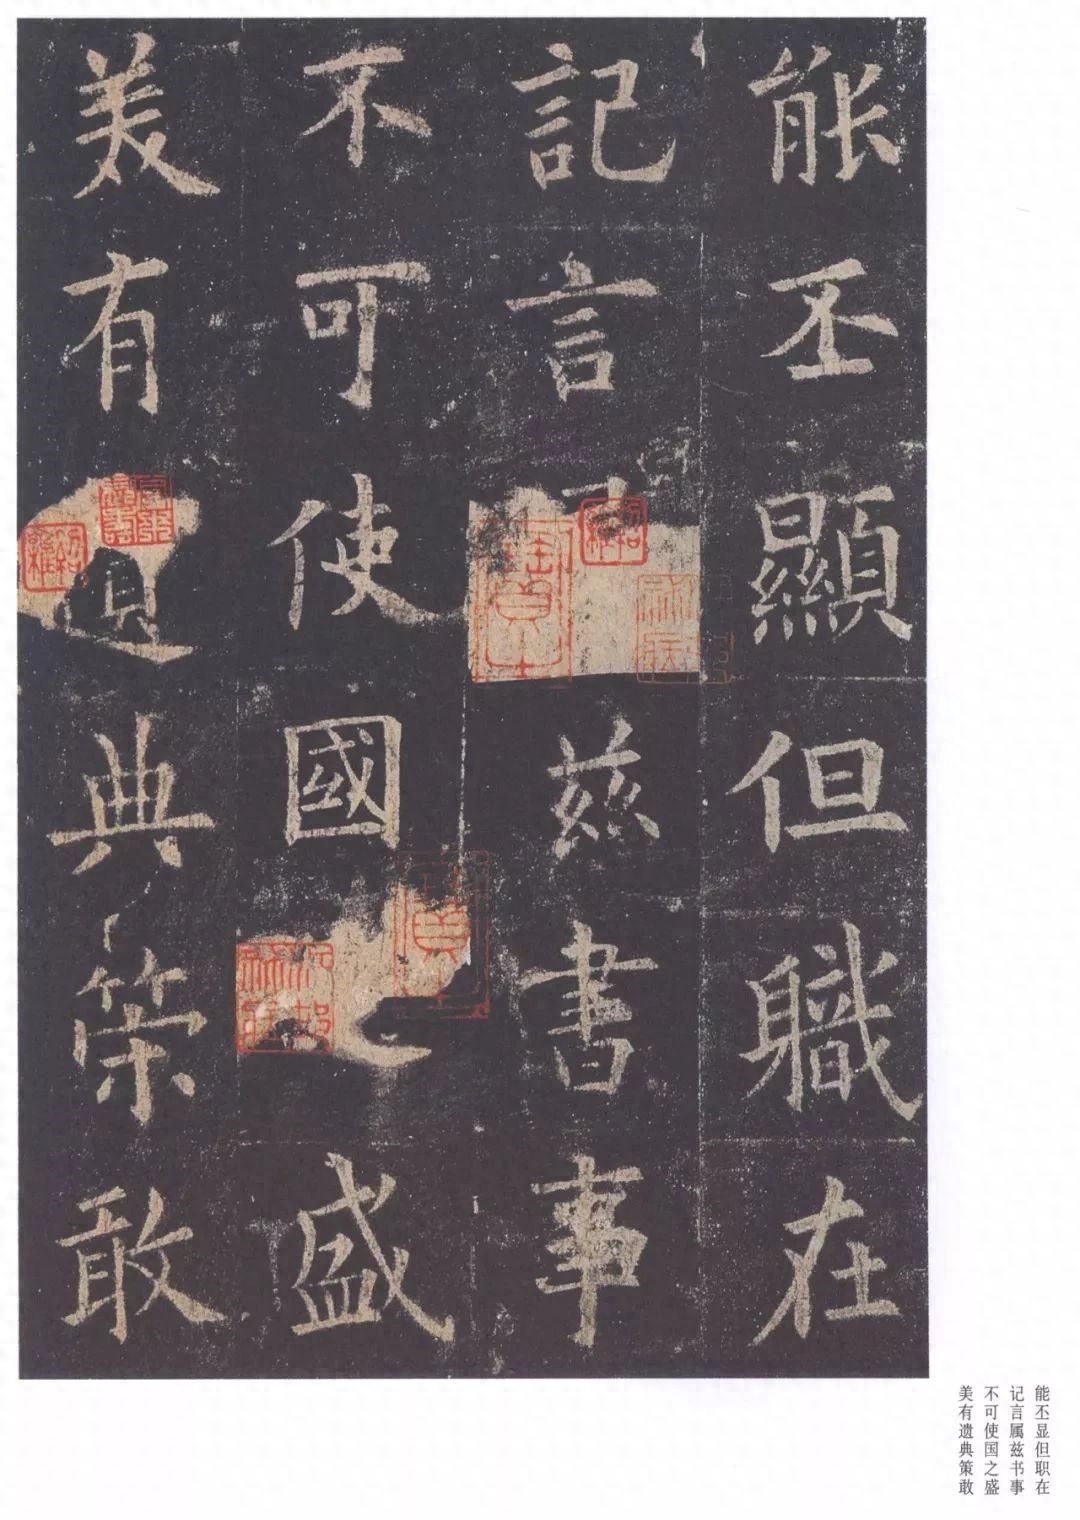 能丕顯但職在
記言兹書事
不可使國之盛
美有遺典策敢
能丕显但职在
记言属兹书事
不可使国之盛
美有遗典策敢